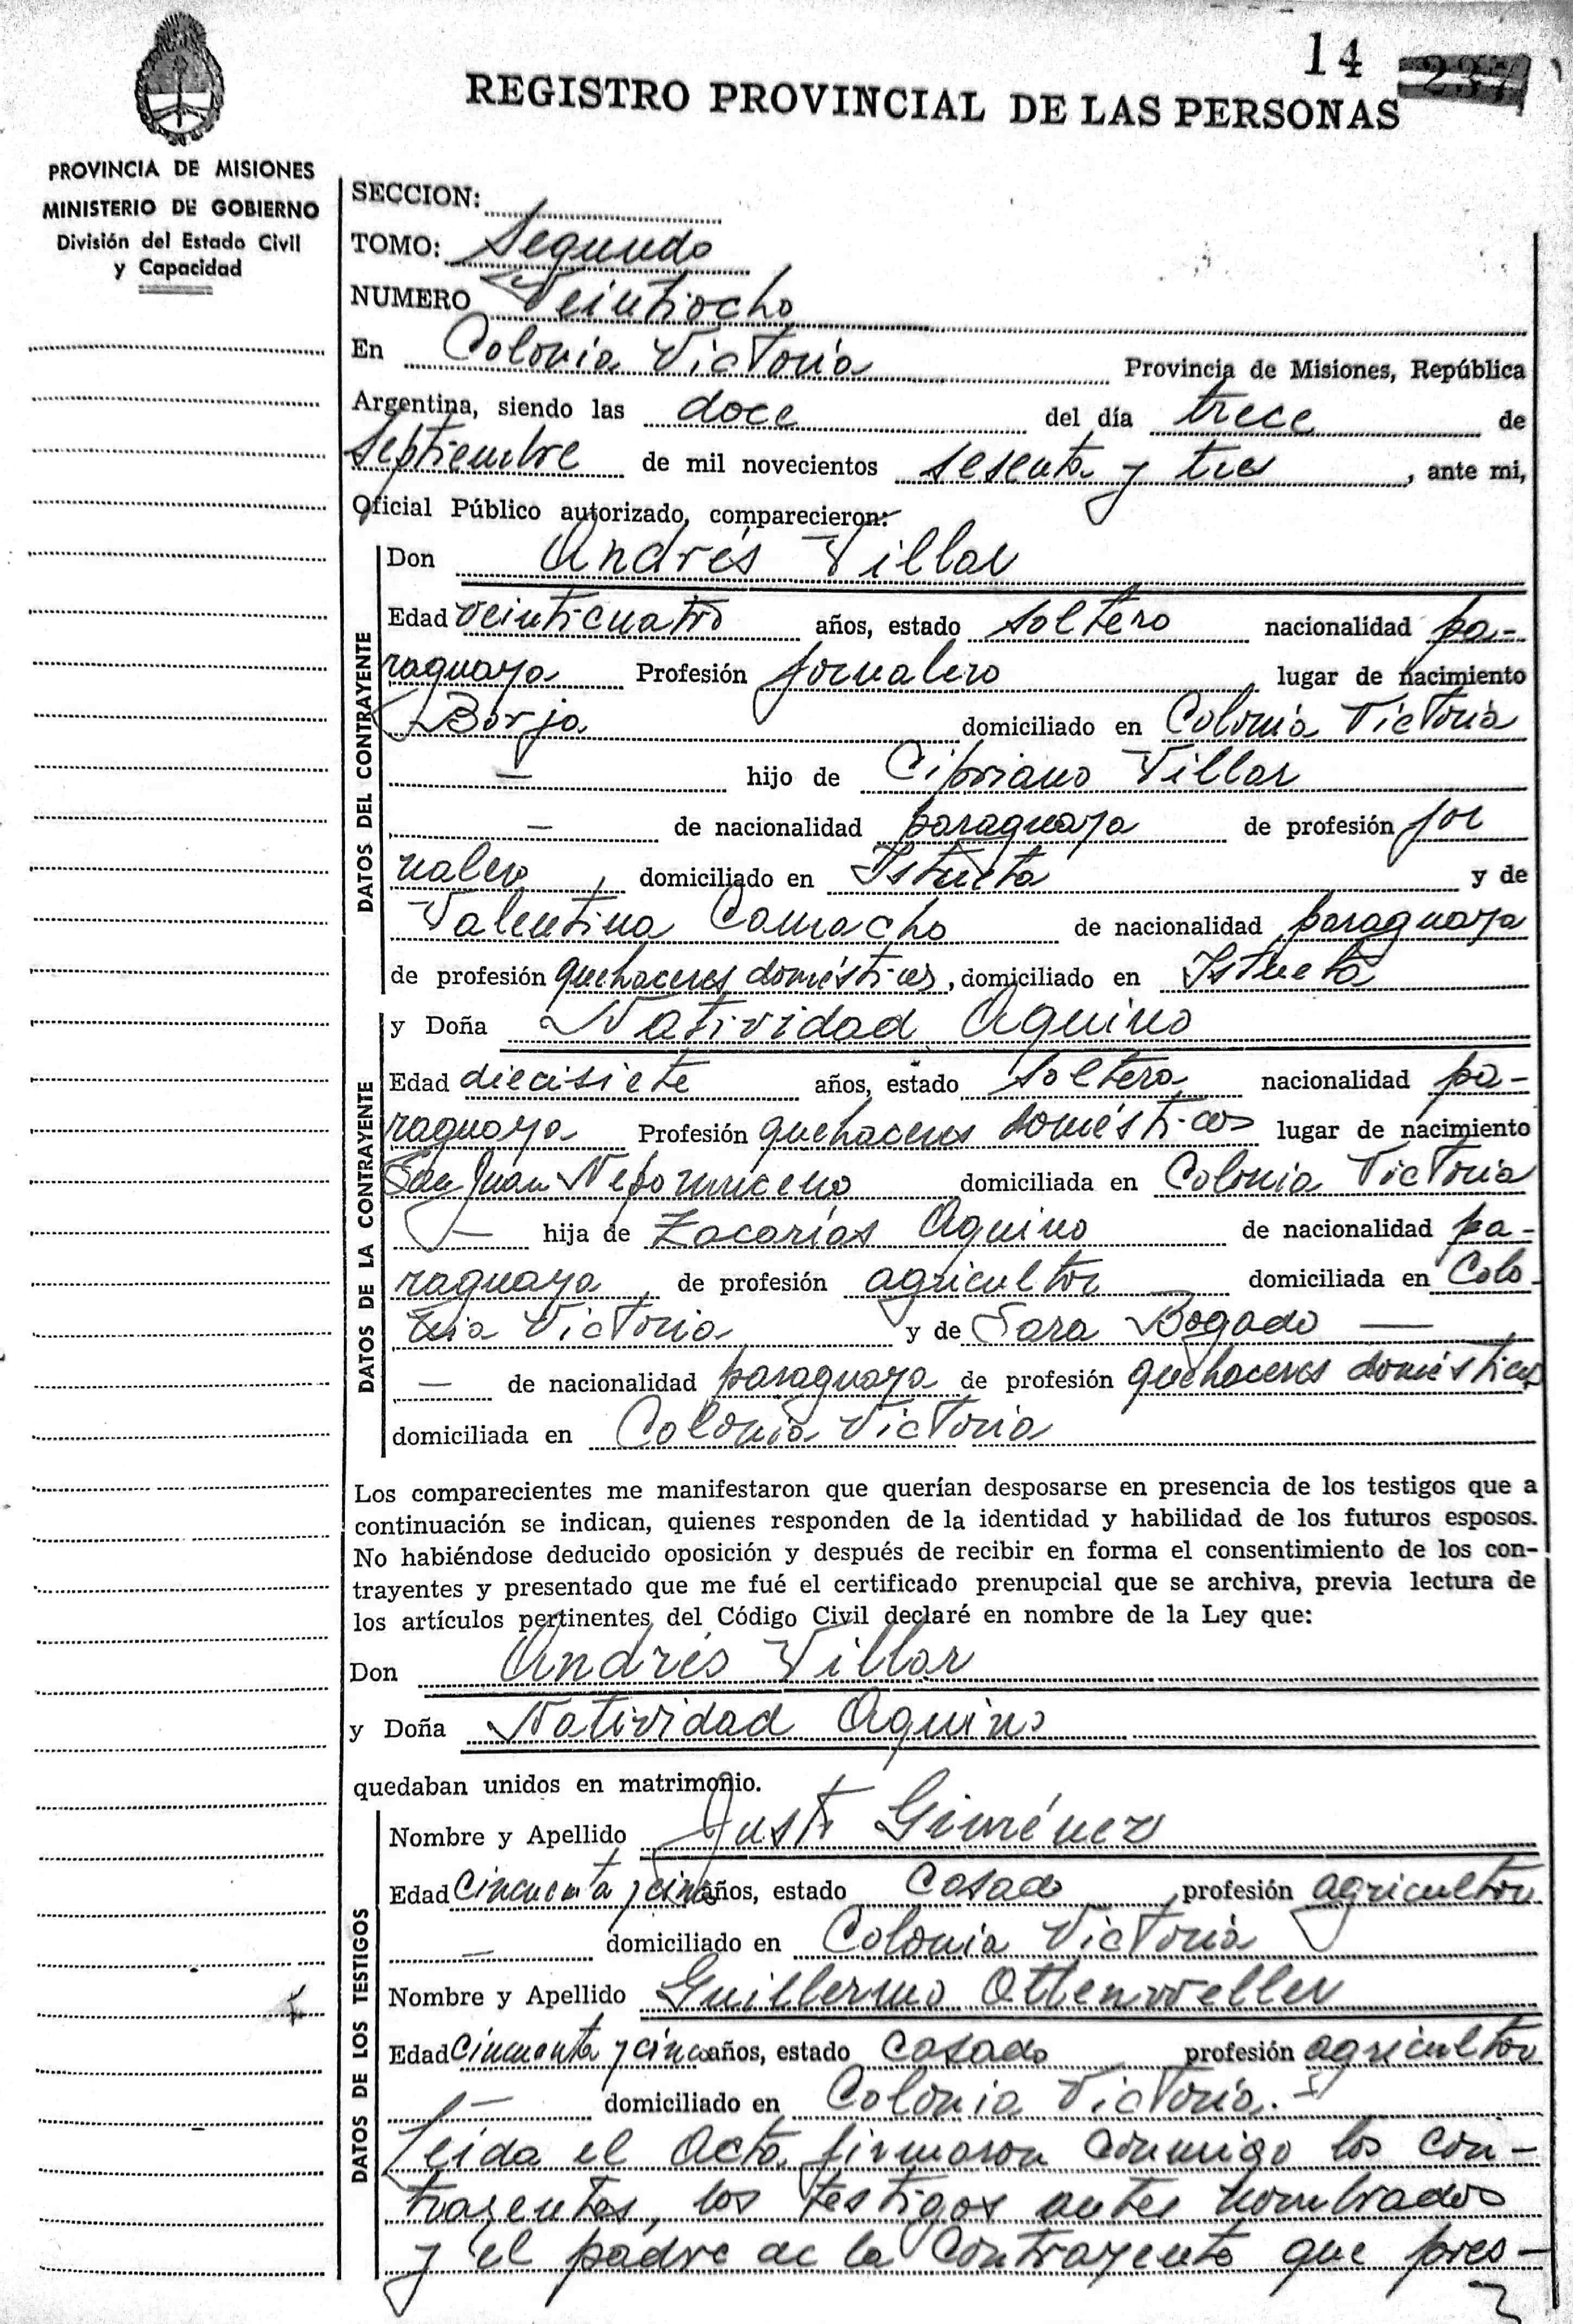 14 237
REGISTRO PROVINCIAL DE LAS PERSONAS
PROVINCIA DE MISIONES
MINISTERIO DE GOBIERNO
División del Estado Civil
y Capacidad
SECCION:
TOMO: Segundo
NUMERO Veintiocho
En Colonia Victoria Provincia de Misiones, República
Argentina, siendo las doce del día trece de
Septiembre de mil novecientos sesenta y tres, ante mi,
Oficial Público autorizado, comparecieron:
DATOS DEL CONTRAYENTE
Don Andrés Villar
Edad veinticuatro años, estado soltero nacionalidad pa-
raguaya Profesión jornalero lugar de nacimiento
Borja domiciliado en Colonia Victoria
— hijo de Cipriano Villar
— de nacionalidad paraguaya de profesión jor
nalero, domiciliado en y de
Valentina Camacho de nacionalidad paraguaya
de profesión quehaceres domésticos, domiciliado en
DATOS DE LA CONTRAYENTE
y Doña Natividad Aquino
Edad diecisiete años, estado soltera nacionalidad pa-
raguaya Profesión quehaceres domésticos lugar de nacimiento
San Juan Nepomuceno domiciliada en Colonia Victoria
— hija de Zacarías Aquino de nacionalidad pa-
raguaya, de profesión agricultor domiciliada en Colo-
nia Victoria y de Sara Bogado —
— de nacionalidad paraguaya de profesión quehaceres domésticos
domiciliada en Colonia Victoria
Los comparecientes me manifestaron que querían desposarse en presencia de los testigos que a
continuación se indican, quienes responden de la identidad y habilidad de los futuros esposos.
No habiéndose deducido oposición y después de recibir en forma el consentimiento de los con-
trayentes y presentado que me fué el certificado prenupcial que se archiva, previa lectura de
los artículos pertinentes del Código Civil declaré en nombre de la Ley que:
Don Andrés Villar
y Doña Natividad Aquino
quedaban unidos en matrimonio.
DATOS DE LOS TESTIGOS
Nombre y Apellido Justo Giménez
Edad Cincuenta y cinco años, estado Casado, profesión agricultor
— domiciliado en Colonia Victoria
Nombre y Apellido Guillermo Ottenweller
Edad Cincuenta y cinco años, estado Casado profesión agricultor
— domiciliado en Colonia Victoria.-
Leída el Acta, firmaron conmigo los con-
trayentes, los testigos antes nombrados
y el padre de la Contrayente que pres-